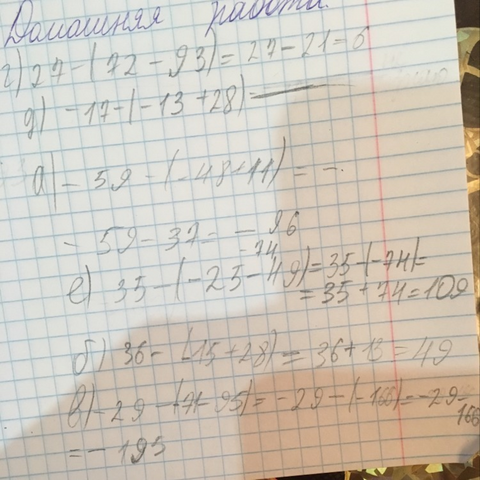 Домашняя работа.
г) 27-(72-93)=27-21=6
д) -17-(-13+28)=
а) -59-(-48+11)=-
-59-37=-96
-74
е) 35-(-25-49)=35-(-74)=
=35+74=109
б) 36-(15+28)=36+13=49
в) -29-(71-95)=-29-(-166)=-29-
166
=-195